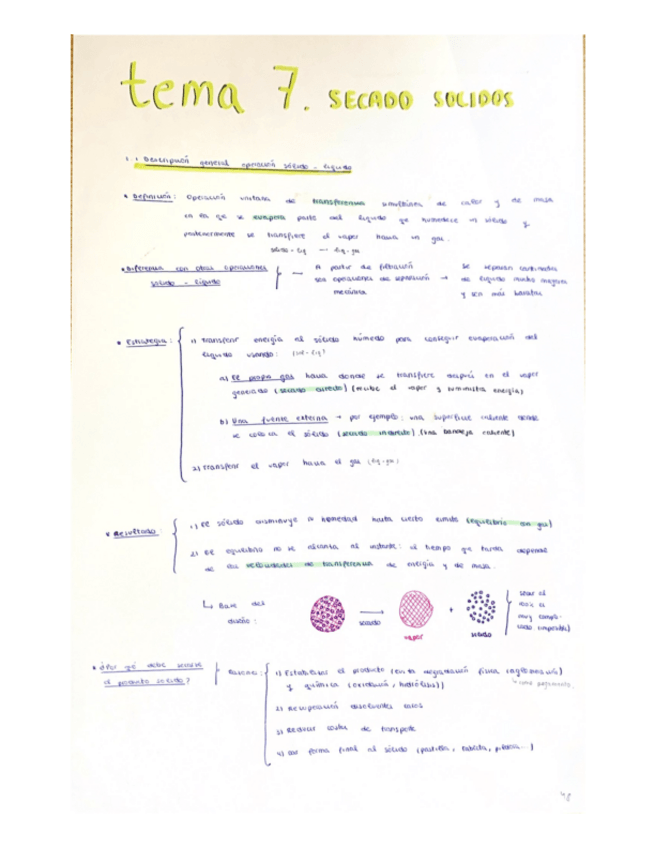 tema 7. SECADO SOLIDOS
1. Descripción general operación sólido-líquido
* Definición: Operación unitaria de transferencia simultánea de calor y de masa
en la que se evapora parte del líquido que humedece un sólido y
posteriormente se transfiere el vapor hacia un gas.
sólido-liq → liq-gas
* Diferencia con otras operaciones
sólido-líquido
— A partir de filtración
son operaciones de separación →
mecánica
Se separan cantidades
de líquido mucho mayores
y son más baratas
* Estrategia:
1) transferir energía al sólido húmedo para conseguir evaporación del
líquido usando:
a) El propio gas hacia donde se transfiere después en el vapor
generado (secado directo) (recibe el vapor y suministra energía)
b) Una fuente externa → por ejemplo: una superficie caliente donde
se coloca el sólido (secado indirecto). (una bandeja caliente)
2) transferir el vapor hacia el gas (liq-gas)
* Resultado:
1) El sólido disminuye la humedad hasta cierto límite (equilibrio con gas)
2) El equilibrio no se alcanza al instante: el tiempo que tarda depende
de las velocidades de transferencia de energía y de masa.
↳ Base del
diseño:
secado
vapor
+
sólido
muy compli-
cado (imposible)
* ¿Por qué debe secarse
el producto sólido?
Razones:
1) Estabilizar el producto (evita degradación física (aglomeración)
y química (oxidación, hidrólisis))
2) Recuperación disolventes caros
3) Reducir costes de transporte
4) Dar forma final al sólido (pastilla, tableta, ...)
48